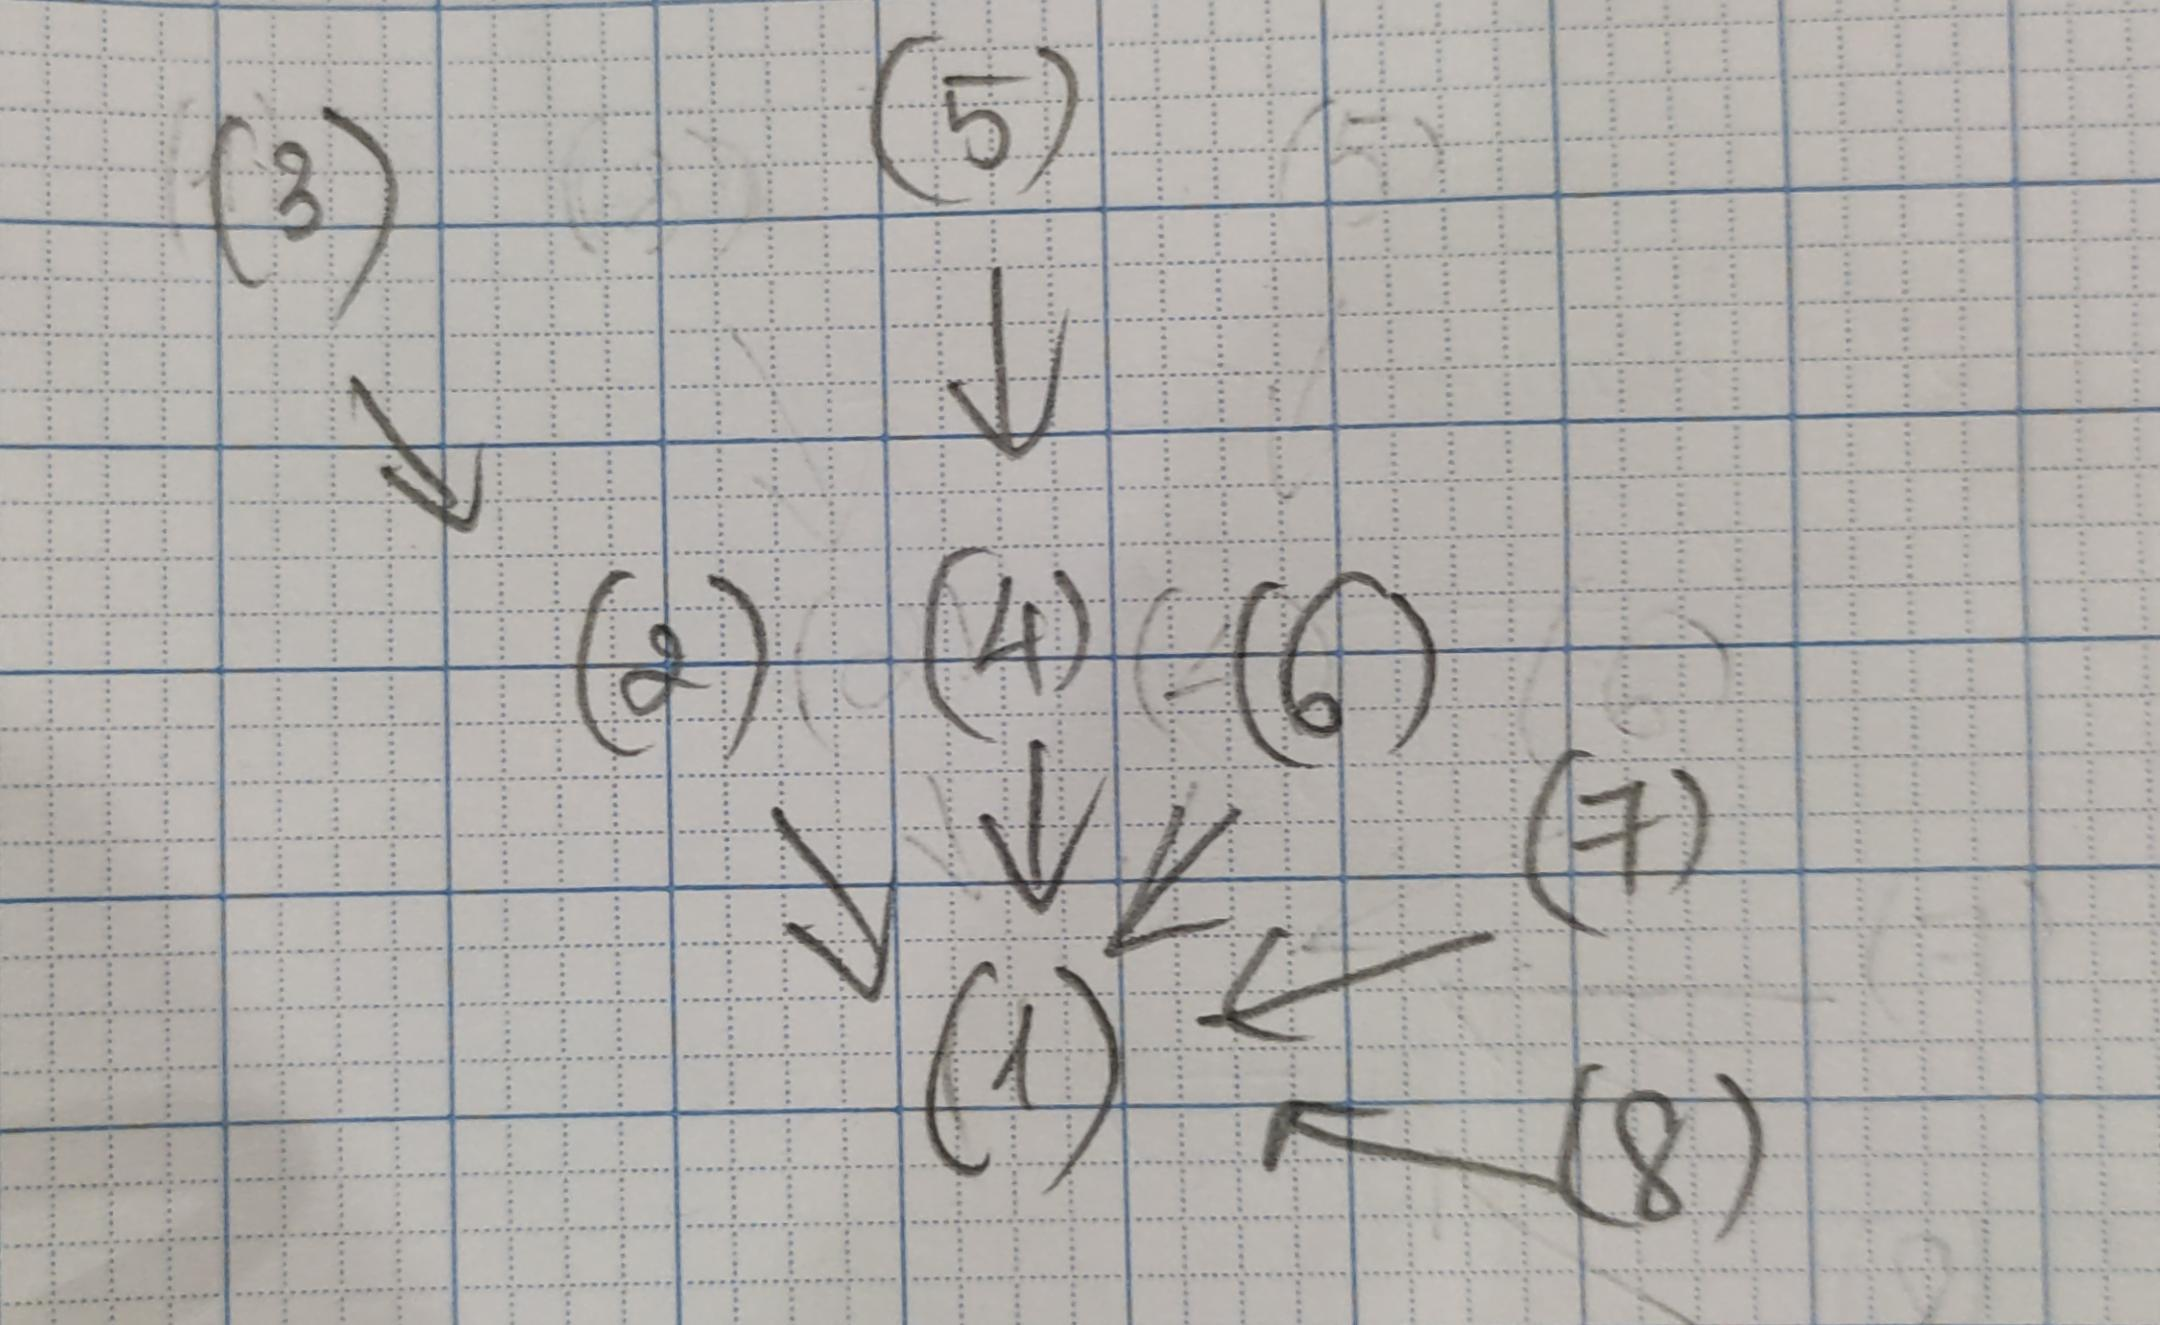 (3) (5)
(2) (4) (6)
(7)
(1)
(8)